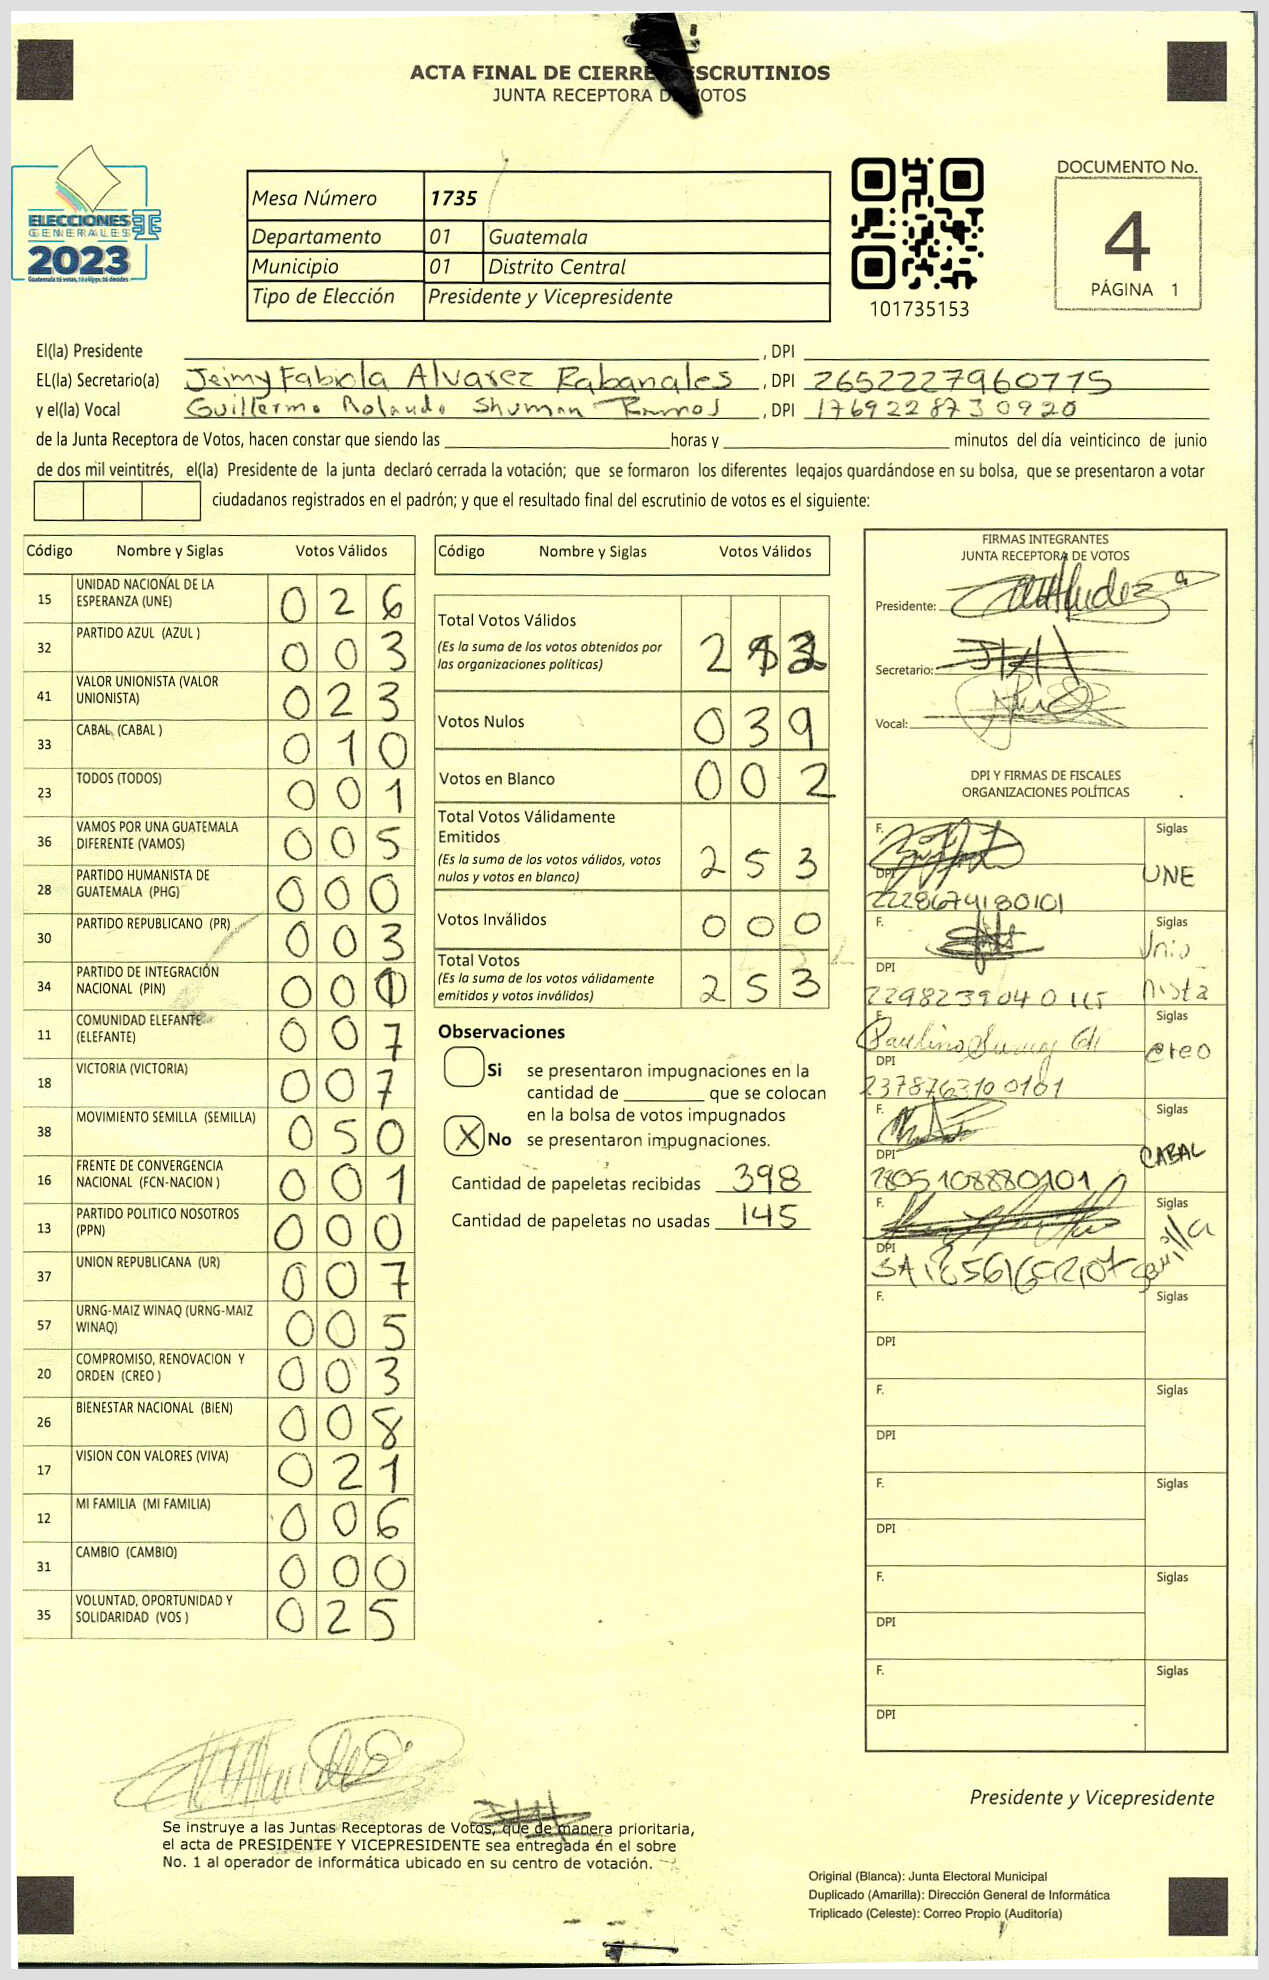 ACTA FINAL DE CIERRE ESCRUTINIOS
JUNTA RECEPTORA DE VOTOS
ELECCIONES
GENERALES
2023
Guatemala tú votas, tú eliges, tú decides
Mesa Número 1735
Departamento 01 Guatemala
Municipio 01 Distrito Central
Tipo de Elección Presidente y Vicepresidente
101735153
DOCUMENTO No.
4
PÁGINA 1
El(la) Presidente , DPI
EL(la) Secretario(a) Jeimy Fabiola Alvarez Rabanales , DPI 2652227960775
y el(la) Vocal Guillermo Rolando Shuman Ramos , DPI 1769228730920
de la Junta Receptora de Votos, hacen constar que siendo las horas y minutos del día veinticinco de junio
de dos mil veintitrés, el(la) Presidente de la junta declaró cerrada la votación; que se formaron los diferentes legajos guardándose en su bolsa, que se presentaron a votar
ciudadanos registrados en el padrón; y que el resultado final del escrutinio de votos es el siguiente:
Código Nombre y Siglas Votos Válidos
15 UNIDAD NACIONAL DE LA ESPERANZA (UNE) 026
32 PARTIDO AZUL (AZUL ) 003
41 VALOR UNIONISTA (VALOR UNIONISTA) 023
33 CABAL (CABAL ) 010
23 TODOS (TODOS) 001
36 VAMOS POR UNA GUATEMALA DIFERENTE (VAMOS) 005
28 PARTIDO HUMANISTA DE GUATEMALA (PHG) 000
30 PARTIDO REPUBLICANO (PR) 003
34 PARTIDO DE INTEGRACIÓN NACIONAL (PIN) 00
11 COMUNIDAD ELEFANTE (ELEFANTE) 007
18 VICTORIA (VICTORIA) 007
38 MOVIMIENTO SEMILLA (SEMILLA) 050
16 FRENTE DE CONVERGENCIA NACIONAL (FCN-NACION ) 001
13 PARTIDO POLITICO NOSOTROS (PPN) 000
37 UNION REPUBLICANA (UR) 007
57 URNG-MAIZ WINAQ (URNG-MAIZ WINAQ) 005
20 COMPROMISO, RENOVACION Y ORDEN (CREO ) 003
26 BIENESTAR NACIONAL (BIEN) 008
17 VISION CON VALORES (VIVA) 021
12 MI FAMILIA (MI FAMILIA) 006
31 CAMBIO (CAMBIO) 000
35 VOLUNTAD, OPORTUNIDAD Y SOLIDARIDAD (VOS ) 025
Código Nombre y Siglas Votos Válidos
Total Votos Válidos
(Es la suma de los votos obtenidos por
las organizaciones políticas)
Votos Nulos 039
Votos en Blanco 002
Total Votos Válidamente
Emitidos
(Es la suma de los votos válidos, votos
nulos y votos en blanco) 253
Votos Inválidos 000
Total Votos
(Es la suma de los votos válidamente
emitidos y votos inválidos) 253
Observaciones
Si se presentaron impugnaciones en la
cantidad de que se colocan
en la bolsa de votos impugnados
X No se presentaron impugnaciones.
Cantidad de papeletas recibidas 398
Cantidad de papeletas no usadas 145
FIRMAS INTEGRANTES
JUNTA RECEPTORA DE VOTOS
Presidente:
Secretario:
Vocal:
DPI Y FIRMAS DE FISCALES
ORGANIZACIONES POLÍTICAS
F. Siglas
DPI UNE
2228674180101
F. Siglas
DPI Unionista
F. Siglas
DPI Creo
2378763100101
F. Siglas
DPI CABAL
2805108880101
F. Siglas
DPI Semilla
F. Siglas
DPI
F. Siglas
DPI
F. Siglas
DPI
F. Siglas
DPI
F. Siglas
DPI
Presidente y Vicepresidente
Se instruye a las Juntas Receptoras de Votos, que de manera prioritaria,
el acta de PRESIDENTE Y VICEPRESIDENTE sea entregada en el sobre
No. 1 al operador de informática ubicado en su centro de votación.
Original (Blanca): Junta Electoral Municipal
Duplicado (Amarilla): Dirección General de Informática
Triplicado (Celeste): Correo Propio (Auditoría)